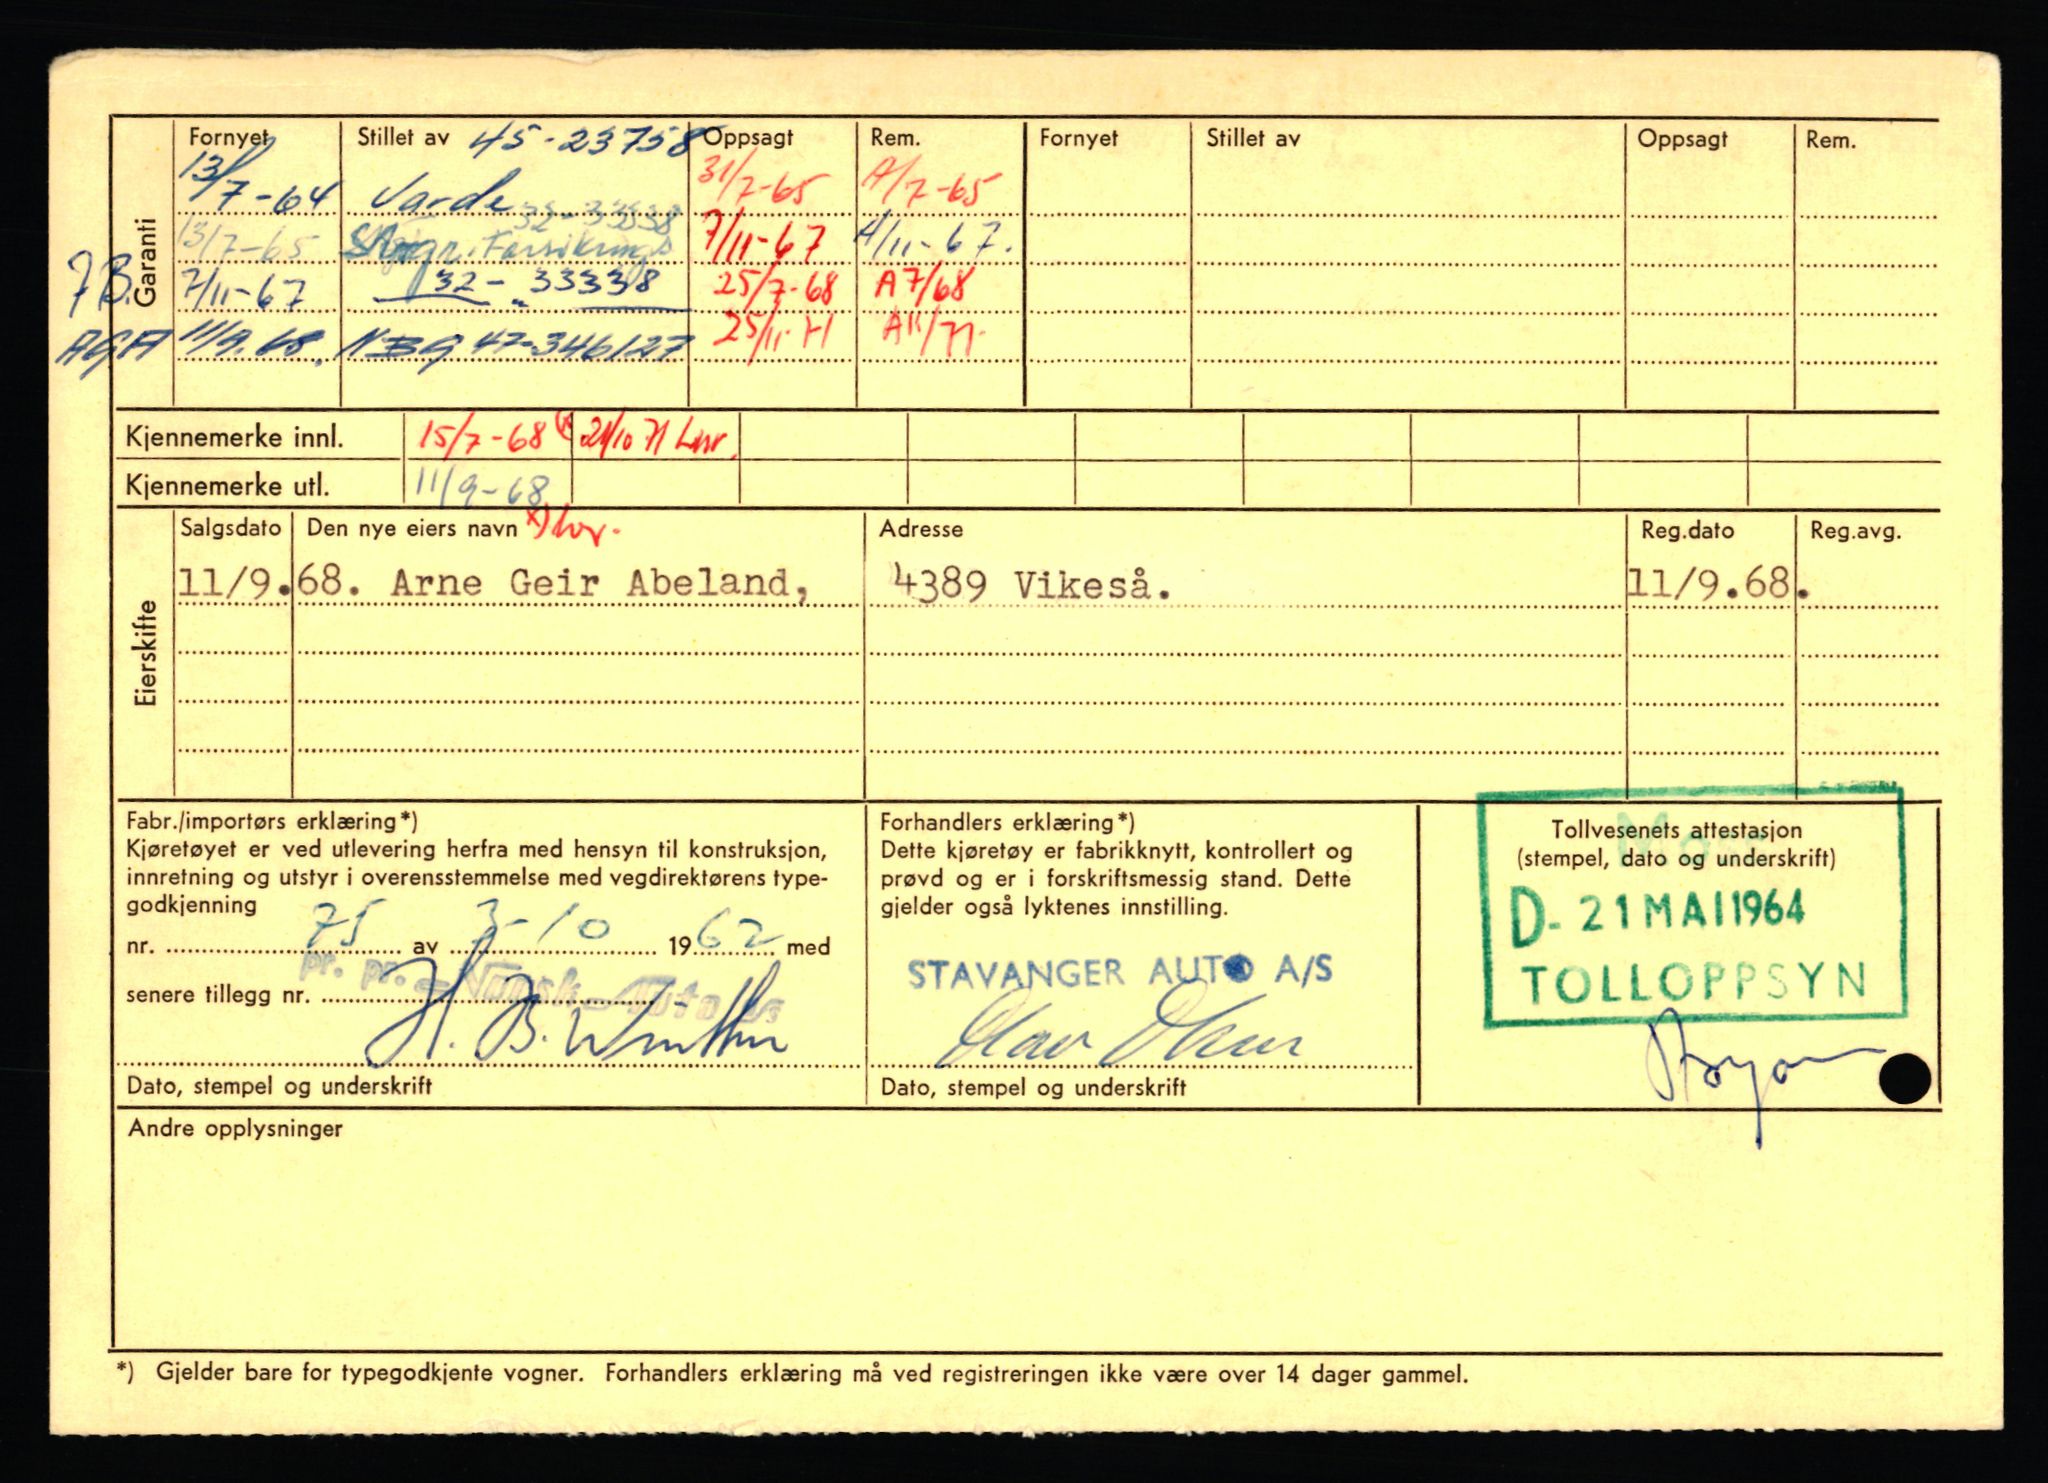 Garanti
Fornyet Stillet av 45-23758 Oppsagt Rem. Fornyet Stillet av Oppsagt Rem.
13/7-64 Varde 31/7-65 A/7-65
32-33338
13/7-65 Forsikrings 7/11-67 A/11-67.
7B. 7/11-67 32-33338 25/7-68 A7/68
AGA 11/9.68. NBG 47-346127 25/11-71 A11/71.
Kjennemerke innl. 15/7-68 21/10 71
Kjennemerke utl. 11/9-68
Eierskifte
Salgsdato Den nye eiers navn Adresse Reg.dato Reg.avg.
11/9.68. Arne Geir Abeland, 4389 Vikeså. 11/9.68.
Fabr./importørs erklæring*)
Kjøretøyet er ved utlevering herfra med hensyn til konstruksjon,
innretning og utstyr i overensstemmelse med vegdirektørens type-
godkjenning
nr. 75 av 3-10 1962 med
pr. pr.
senere tillegg nr.
H. B. Winther
Dato, stempel og underskrift
Forhandlers erklæring*)
Dette kjøretøy er fabrikknytt, kontrollert og
prøvd og er i forskriftsmessig stand. Dette
gjelder også lyktenes innstilling.
STAVANGER AUTO A/S
Olav Olsen
Dato, stempel og underskrift
Tollvesenets attestasjon
(stempel, dato og underskrift)
D- 21 MAI 1964
TOLLOPPSYN
Andre opplysninger
*) Gjelder bare for typegodkjente vogner. Forhandlers erklæring må ved registreringen ikke være over 14 dager gammel.